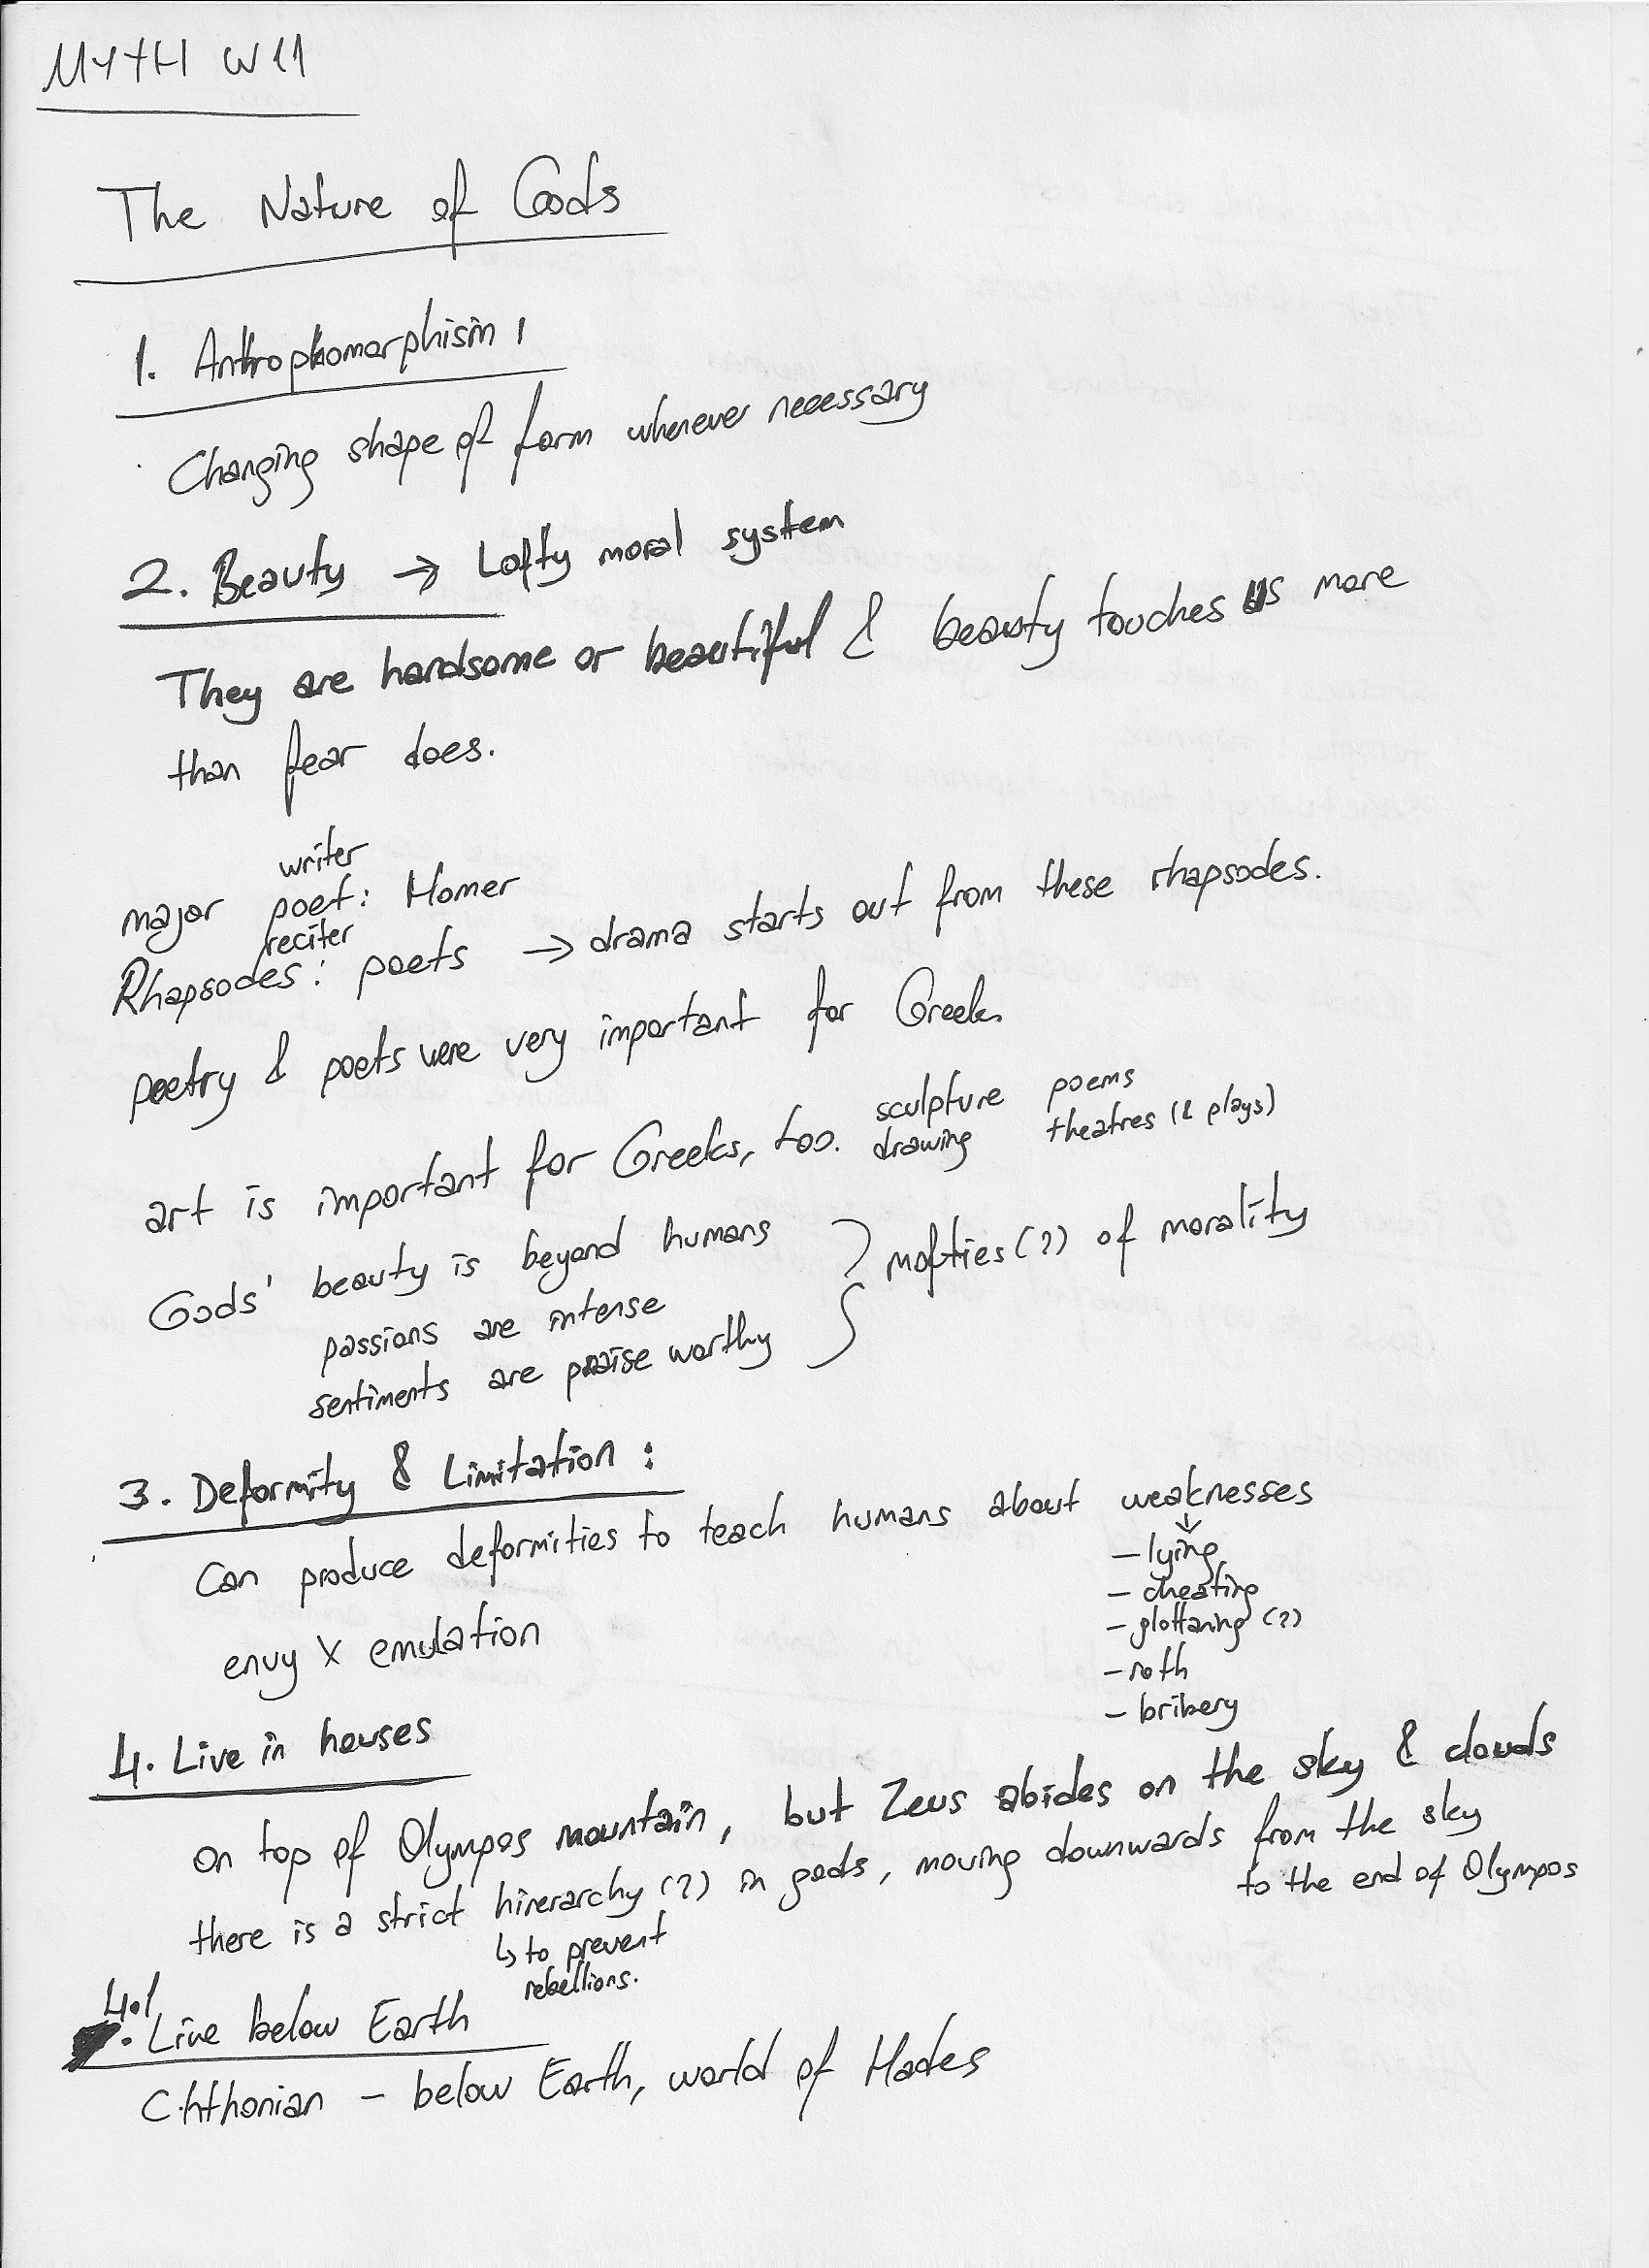 MYTH W11
The Nature of Gods
1. Anthrophomorphism
Changing shape of form whenever necessary
2. Beauty → Lofty moral system
They are handsome or beautiful & beauty touches us more
than fear does.
writer
major poet: Homer
reciter
Rhapsodes: poets → drama starts out from these rhapsodes.
poetry & poets were very important for Greeks
sculpture poems
art is important for Greeks, too. drawing theatres (& plays)
Gods' beauty is beyond humans
passions are intense
sentiments are praise worthy
mofties (?) of morality
3. Deformity & Limitation:
Can produce deformities to teach humans about weaknesses
↓
- lying
- cheating
- glottaning (?)
- roth
- bribery
envy X emulation
4. Live in houses
on top of Olympos mountain, but Zeus abides on the sky & clouds
there is a strict hirerarchy (?) in gods, moving downwards from the sky
to the end of Olympos
↳ to prevent
rebellions.
4.1
. Live below Earth
Chthonian - below Earth, world of Hades